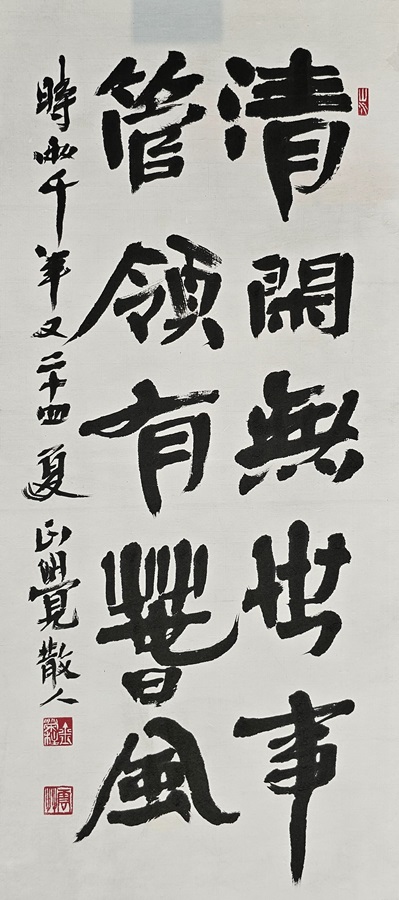 清閑無世事
管領有春風
時兩千年又二十四夏 正覺散人